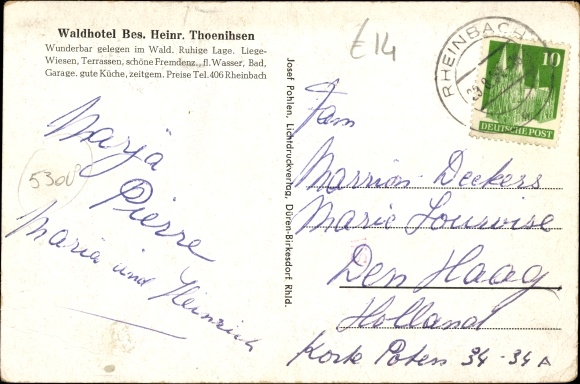 Waldhotel Bes. Heinr. Thoenihsen
Wunderbar gelegen im Wald. Ruhige Lage. Liege-
Wiesen, Terrassen, schöne Fremdenz. fl. Wasser, Bad,
Garage. gute Küche, zeitgem. Preise Tel. 406 Rheinbach
£14
RHEINBACH
10
DEUTSCHE POST
Josef Pohlen, Lichtdruckverlag, Düren-Birkesdorf Rhld.
5300
Marja
Pierre
Maria und Heinrich
Fam
Marrion Deckers
Marie Louwise
Den Haag.
Holland
Korte Poten 34-34A